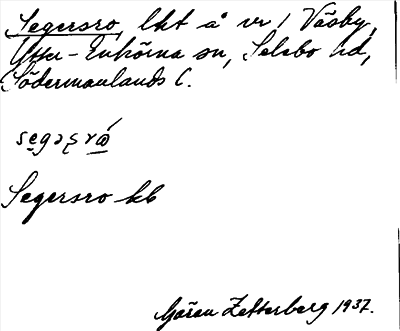 Segersro, lht å vr 1 Väsby,
Ytter-Enhörna sn, Selebo hd,
Södermanlands l.
Segersro kb
Göran Zetterberg 1937.